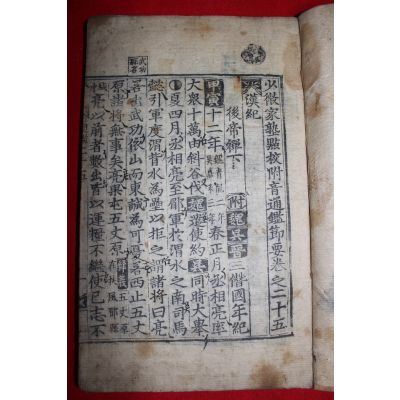 少微家塾點校附音通鑑節要卷之二十五
漢紀
後帝禪下 附魏吳晉三僭國年紀
甲寅十二年 春正月丞相亮率
大衆十萬由斜谷伐魏遣使約吳同時大擧
夏四月丞相亮至郿軍於渭水之南司馬
懿引軍度渭背水爲壘以拒之謂諸將曰亮
若出武功依山而東誠爲可憂若西止五丈
原諸將無事矣亮果屯五丈原 五丈原
亮以前者數出皆以運糧不繼使己志不
武功
縣名